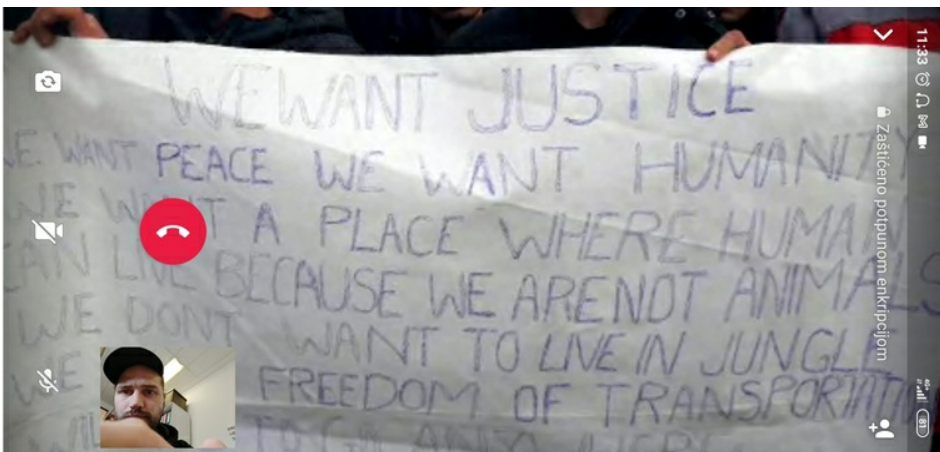 WE WANT JUSTICE
WE WANT PEACE WE WANT HUMANITY
WE WANT A PLACE WHERE HUMAN
CAN LIVE BECAUSE WE ARENOT ANIMALS
WE DONT WANT TO LIVE IN JUNGLE
WE FREEDOM OF TRANSPORTATI
TO GO
11:33
Zaštićeno potpunom enkripcijom
4G
81